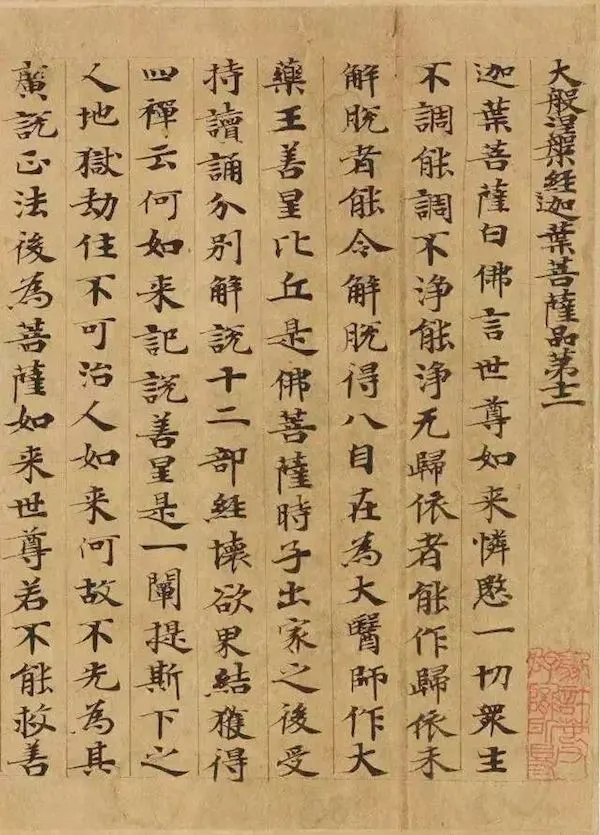 大般涅槃經迦葉菩薩品第十二
迦葉菩薩白佛言世尊如来憐愍一切衆生
不調能調不淨能淨无歸依者能作歸依未
解脫者能令解脫得八自在為大醫師作大
藥王善星比丘是佛菩薩時子出家之後受
持讀誦分別解說十二部經壞欲界結獲得
四禪云何如来記說善星是一闡提斯下之
人地獄劫住不可治人如来何故不先為其
廣說正法後為菩薩如来世尊若不能救善